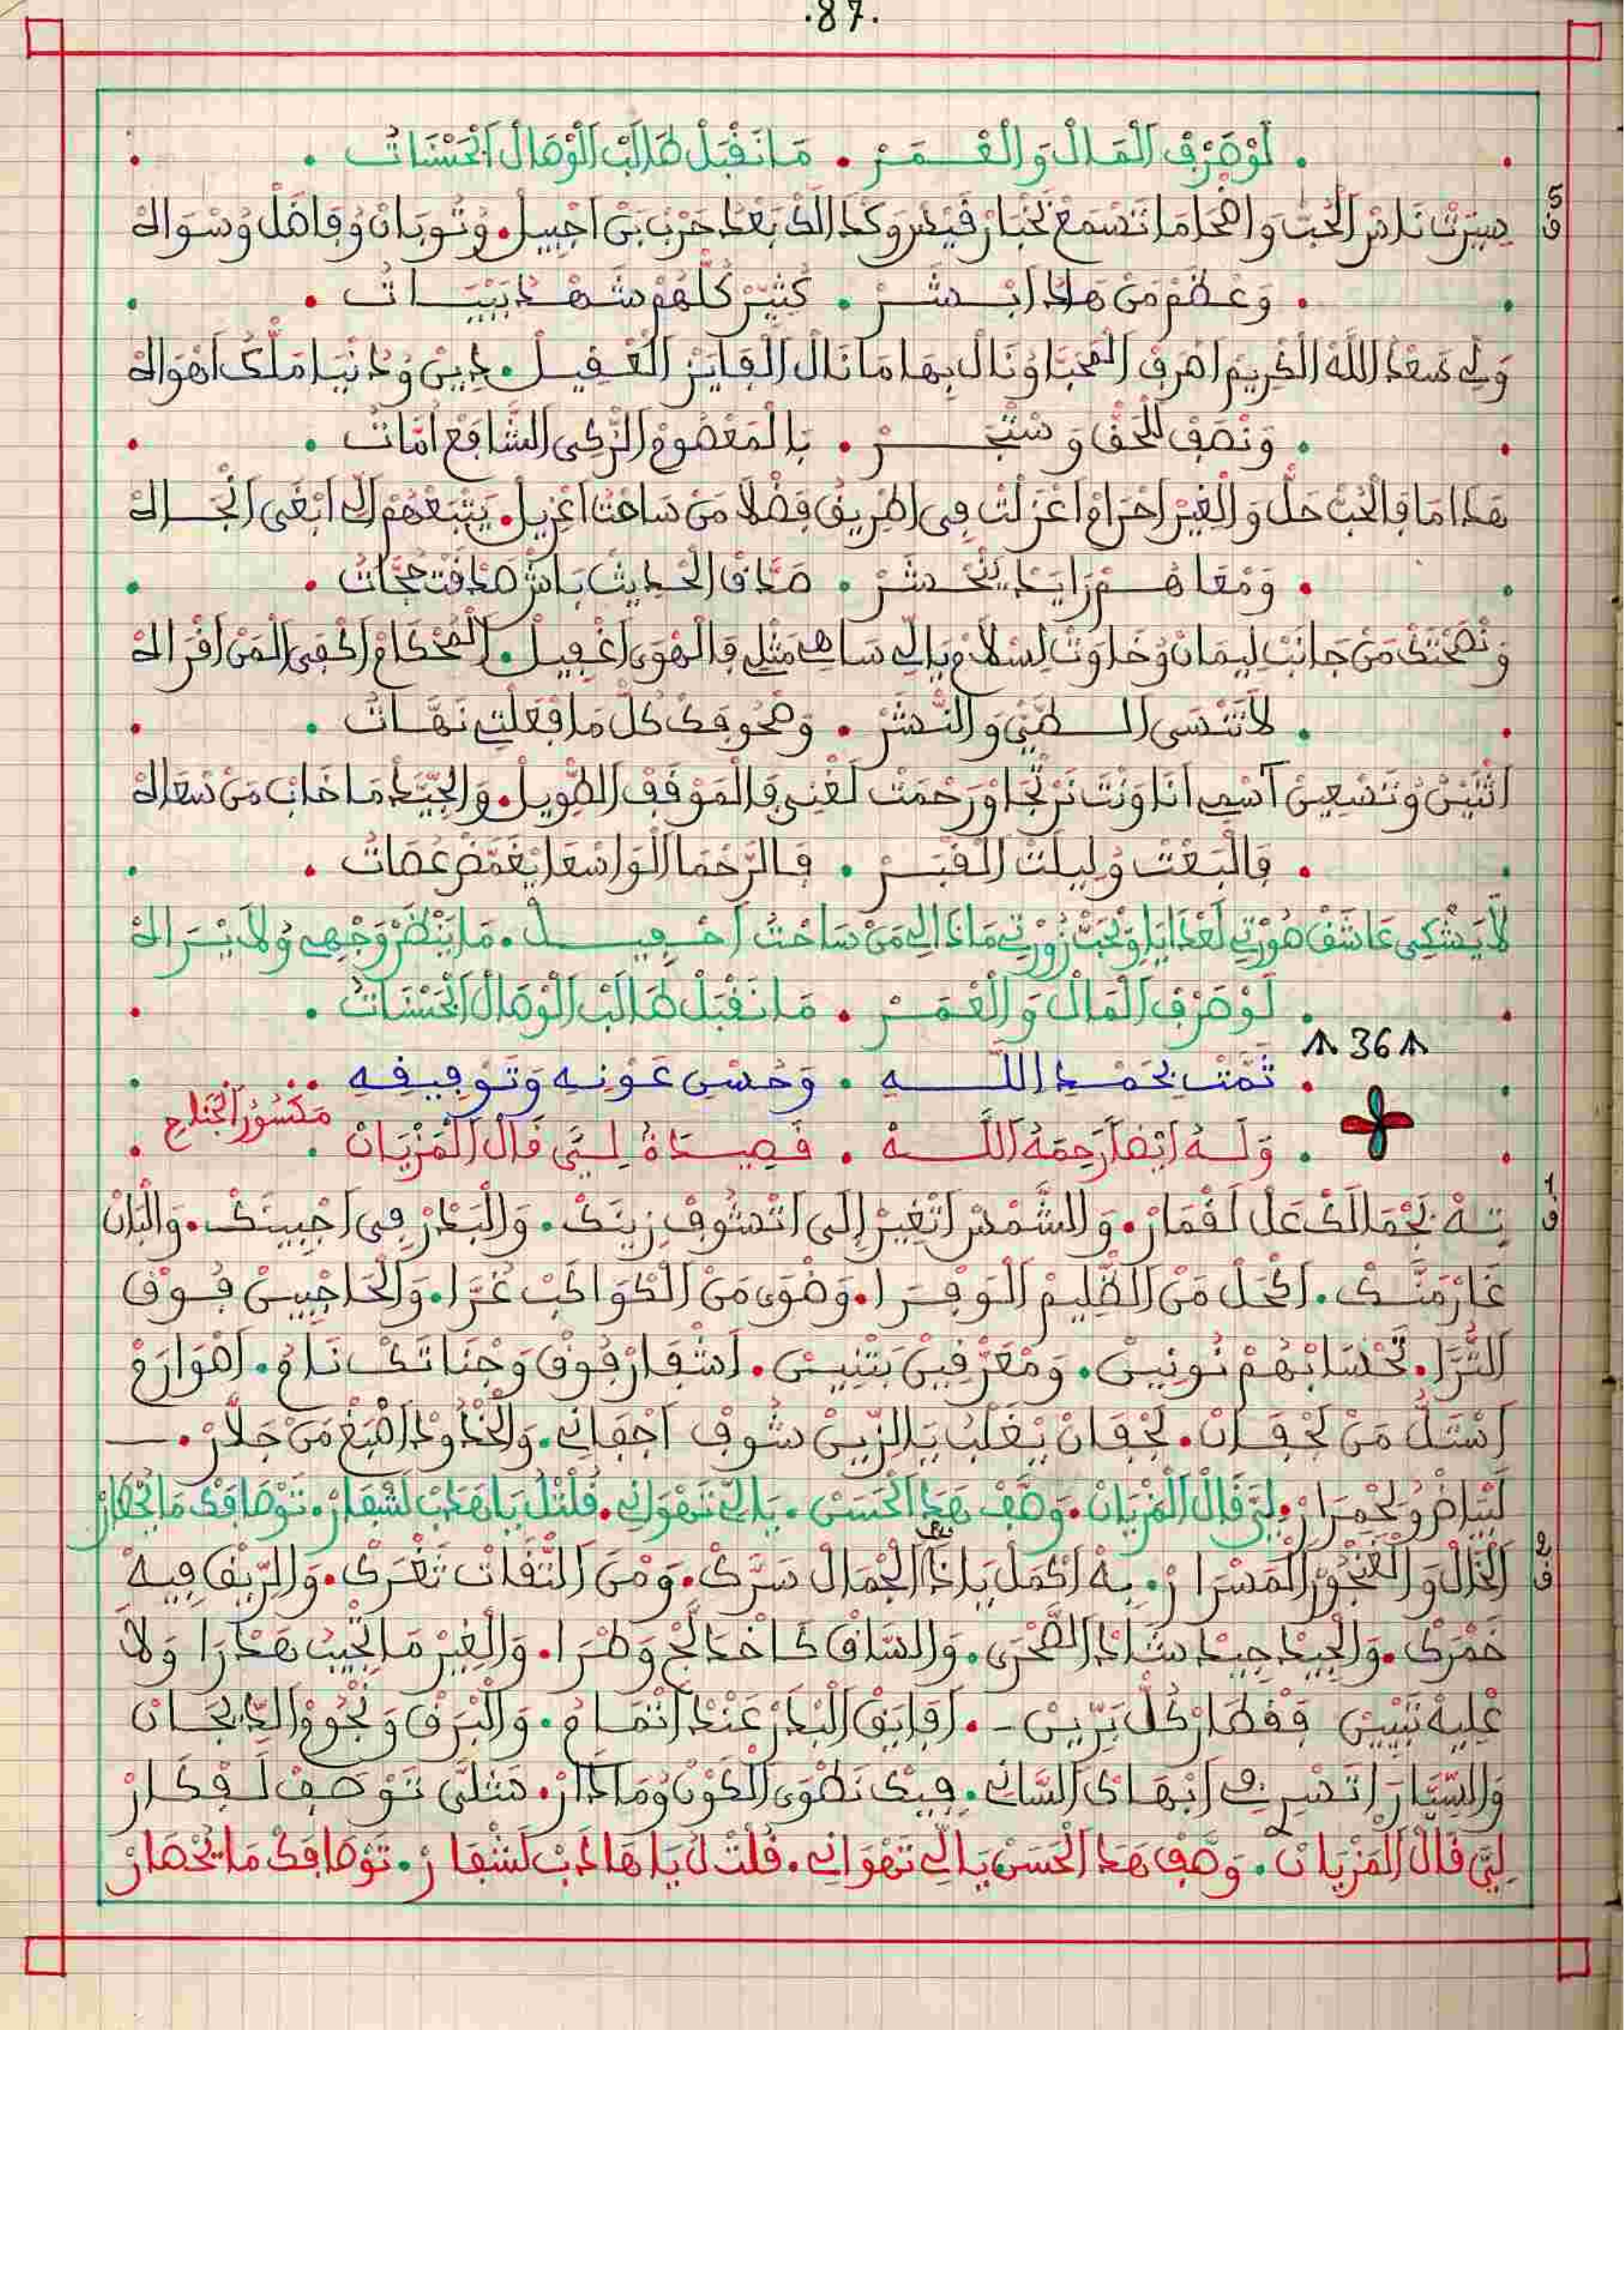 .87.
لَوْصَرْف الْمَالْ وَالْعْمَرْ . مَانَقْبَلْ طَالَبْ الْوْصَالْ الْحَسْنَاتْ .
ف5 سِيرْتْ نَاسْ الْحُبّ وَاضْحَا مَا تَسْمَعْ لَخْبَارْ قَيْسْ وَكْدَالَكْ بَعْدْ حَرْبْ بَنْ اجْبِيلْ . وُتُوبَانْ وُفَاضَلْ وُسْوَالَهْ
. وَعْظَمْ مَنْ هَادْ ابْشَرْ . كْثِيرْ كُلّهُمْ شَهْدْ بَيْبَاتْ .
وَلِي سَعْدْ اللَّهْ الْكْرِيمْ اصْرَفْ الْمْحَبَّا وْنَالْ بِهَا مَا نَالْ الْفَايَزْ الْعْقِيلْ . دِينْ وُدُنْيَا مَلَّكْ اهْوَالَهْ
. وَنْصَفْ لَلْحَقّ وَسْتَجَرْ . بَالْمَعْصُومْ الزّكِي الشَّافَعْ امَّاتْ .
هَدَا مَا فَالْحُبّ حَلّ وَالْغِيرْ احْرَامْ اعْزَلْتْ فِي اطْرِيقْ فَضْلَا مَنْ سَاحْتْ اعْزِيلْ . يَتْبَعْهُمْ الِي ابْغَى انْجَالَهْ
. وَمْعَاهُمْ زَايَدْ يَنْحْشَرْ . صَدَّاقْ الْحْدِيثْ بَاشْ صَدْقَتْ حُجَّاتْ .
وَنْصَحْتَكْ مَنْ جَانَبْ لِيمَانْ وُخَاوَتْ لِسْلَامْ يَالِي سَاهِي مَثْلِي فَالْهْوَى اغْفِيلْ . الْمُحْكَامْ اكْفَى الْمَنْ اقْرَالَهْ
. لَاتَنْسَى الطَّيّ وَالنّشَرْ . وَصْحُوفَكْ كُلّ مَا فْعَلْتِي نَصَّاتْ .
اثْنَيْنْ وُتَسْعِينْ آسْمِي انَا وَنْتَ نَرْتْجَاوْ رَحْمَتْ لَغْنِي فَالْمَوْقَفْ الطّوِيلْ . وَالْجَيَّدْ مَا خَابْ مَنْ سْعَالَهْ
. فَالْبَعْتْ وُلِيلَتْ الْقْبَرْ . فَالرَّحْمَا الْوَاسْعَا يَغَمَّضْ عُصَاتْ .
لَا يَشْكِي عَاشَقْ صُورْتِي لَعْدَايَا وِيْحَبّ زُورْتِي مَادَالِي مَنْ سَاحْتْ اخْفِيلْ . مَا يَنْظَرْ وَجْهِي وُلَا يْرَالَهْ
. لَوْصَرْف الْمَالْ وَالْعْمَرْ . مَانَقْبَلْ طَالَبْ الْوْصَالْ الْحَسْنَاتْ .
36
. تَمَّتْ بِحَمْدِ اللَّهِ . وَحُسْنِ عَوْنِهِ وَتَوْفِيقِهِ .
. وَلَهُ ايْضًا رَحِمَهُ اللَّهْ . قَصِيدَةُ لِيَّ قَالْ الْمَزْيَانْ . مَكْسُورْ الْجْنَاحْ
ف1 تِهْ بَجْمَالَكْ عَلْ لَقْمَارْ . وَالشَّمْسْ اتْغِيرْ إلَى اتْشُوفْ زِينَكْ . وَالْبَدْرْ فِي اجْبِينَكْ . وَالْبَانْ
غَارْ مَنَّكْ . اكْحَلْ مَنْ الظْلِيمْ الْوَفْرَا . وَضْوَى مَنْ الْكْوَاكَبْ غُرَّا . وَالْحَاجْبِينْ فُوقْ
الْثُّرَا . تَحْسَابْهُمْ نُونِينْ . وَمْعَرْقِينْ بَتْنِينْ . اشْفَارْ فُوقْ وَجْنَاتَكْ نَامُ . اصْوَارَمْ
اسْتَلّ مَنْ لَجْفَانْ . لَجْفَانْ يَغْلَبْ يَالزّينْ شُوفْ اجْفَانِي . وَالْخْدُودْ اصْبَغْ مَنْ جَلَّارْ .
لَبْيَاضْ وُلَحْمِرَارْ . لِيَّ قَالْ الْمَزْيَانْ . وَصَّفْ هَدَا الْحَسْنْ . يَالِي تَهْوَانِي . قُلْتْلُ يَاهَدْبْ لَشْفَارْ . تَوْصَافَكْ مَا يَحْصَارْ
ف2 الْخَالْ وَالْغُنْجُورْ الْمَسْرَارْ . بِهْ اكْمَلْ يَا دَا الْجْمَالْ سَرَّكْ . وَمْنَ التّقَاتْ ثَغْرَكْ . وَالرِّيقْ فِيهْ
خَمْرَكْ . وَالْجِيدْ جِيدْ شَادْ الصَّحْرَى . وَالسَّاقْ كَاخْدَالَجْ وَطْرَا . وَالْغِيرْ مَا يْجِيبْ هَدْرَا وَلَا
عْلِيهْ نَبْنِينْ فَقْطَارْ كُلّ بَرِّينْ . افَايَقْ الْبْدَرْ عَنْدْ اتْمَامُ . وَالْبَرْقْ وَنْجُومْ الدِّيجَانْ
وَالسّيَّارَ اتَسْرِي فِي ابْهَاكْ السَّانِي . فِيكْ نَطْوَى الْكُونْ وُمَا دَارْ . مَثْلَى تَوْصَفْ لَفْكَارْ
لِيَّ قَالْ الْمَزْيَانْ . وَصَّفْ هَدَا الْحَسْنْ يَالِي تَهْوَانِي . قُلْتْلُ يَاهَادَبْ لَشْفَارْ . تَوْصَافَكْ مَا يَحْصَارْ